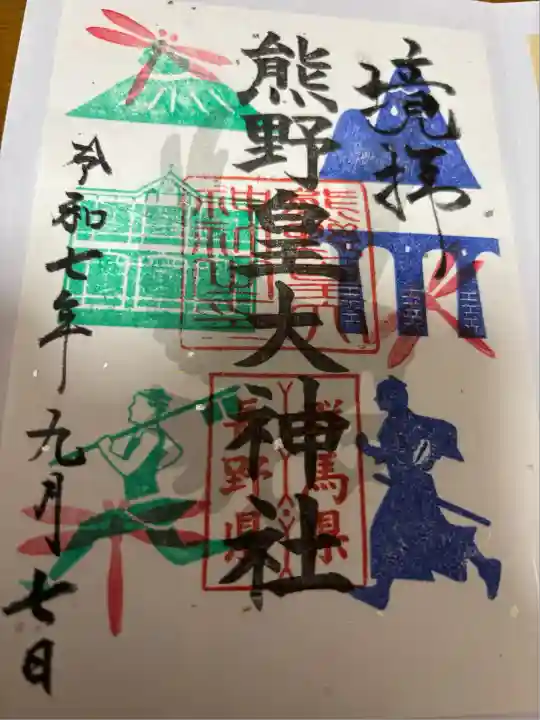 境拝
熊野皇大神社
群馬県
長野県
令和七年九月七日